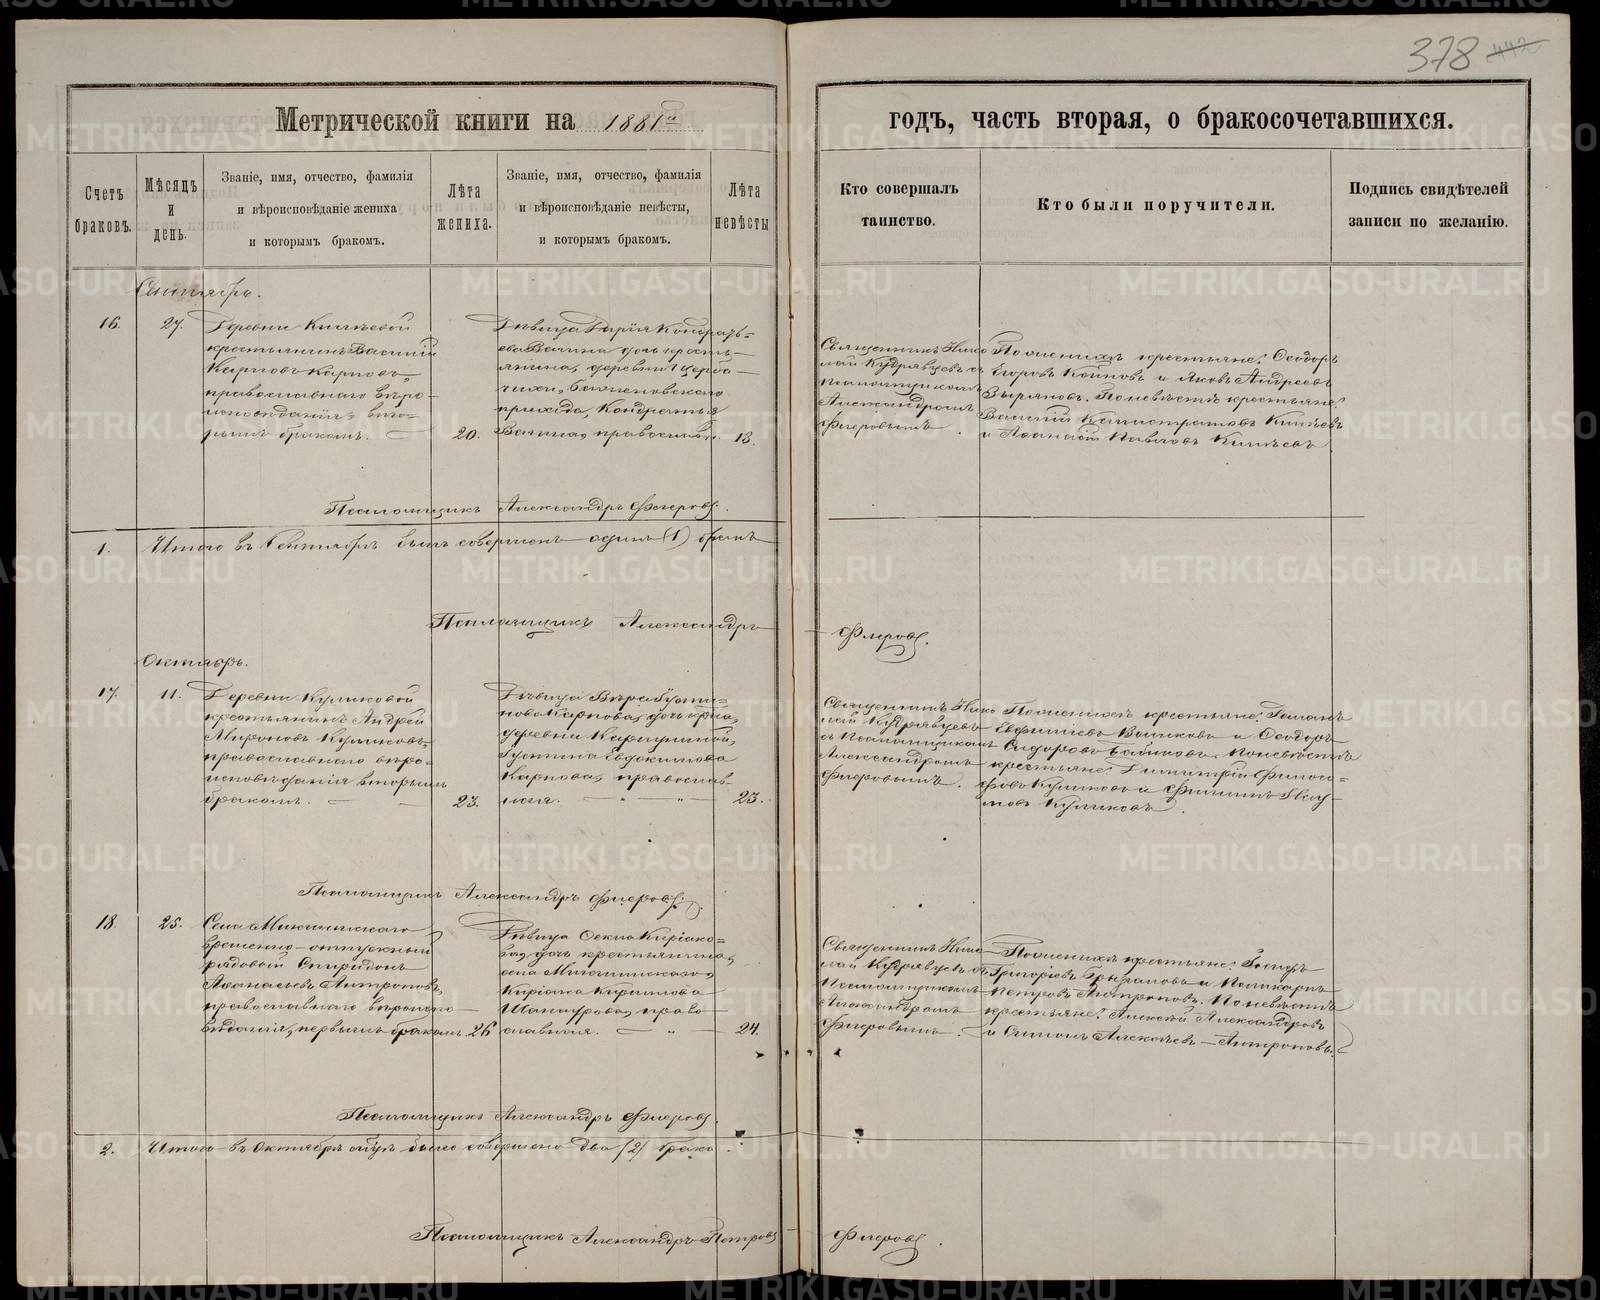 378 442
Метрической книги на 1881й
годъ, часть вторая, о бракосочетавшихся.
Счетъ браковъ.
Мѣсяцъ и день.
Званіе, имя, отчество, фамилія
и вѣроисповѣданіе жениха
и которымъ бракомъ.
Лѣта жениха.
Званіе, имя, отчество, фамилія
и вѣроисповѣданіе невѣсты,
и которымъ бракомъ.
Лѣта невѣсты
Кто совершалъ
таинство.
Кто были поручители.
Подпись свидѣтелей
записи по желанію.
Сентябрь.
16.
27.
Деревни Кишкевой
крестьянинъ Василій
Карповъ Карповъ,
православнаго вѣро-
исповѣданія, вто-
рымъ бракомъ.
20.
Дѣвица Дарія Кондрать=
ева Вагина, дочь кресть-
янина, деревни Щерба-
чихи, Баженовскаго
прихода, Кондратія
Вагина, православн.
18.
Священникъ Нико
лай Кудрявцевъ съ
псаломщикомъ
Александромъ
Флеровымъ.
По женихѣ крестьяне: Ѳеодоръ
Егоровъ Коиновъ и Яковъ Андреевъ
Зыряновъ. По невѣстѣ крестьяне:
Василій Калистратовъ Кишкевъ
и Аѳанасій Павловъ Кишкевъ
Псаломщикъ Александръ Флеровъ.
1. Итого въ Сентябрѣ былъ совершенъ один (1) бракъ
Псаломщикъ Александръ
Флеровъ.
Октябрь.
17.
11.
Деревни Куликовой
крестьянинъ Андрей
Мироновъ Куликовъ,
православнаго вѣро-
исповѣданія вторымъ
бракомъ.
23.
Дѣвица Вѣра Густи=
нова Карпова, дочь кр-на,
деревни
Густина Евдокимова
Карпова, православ-
ная.
23.
Священникъ Нико
лай Кудрявцевъ
съ Псаломщикомъ
Александромъ
Флеровымъ.
По женихѣ крестьяне: Романъ
Евфимьевъ Воинковъ и Ѳеодоръ
Сидоровъ Бабиковъ. По невѣстѣ
крестьяне: Димитрій Филосо-
фовъ Куликовъ и Филиппъ Нау-
мовъ Куликовъ.
Псаломщикъ Александръ Флеровъ.
18.
25.
Села
временно-отпускный
рядовой Спиридонъ
Аѳанасьевъ Антроповъ,
православнаго вѣроиспо-
вѣданія, первымъ бракомъ.
26
Дѣвица Ѳекла Киріако=
ва, дочь крестьянина,
села
Киріака Кирилова
Шанаурова, право-
славная.
24.
Священникъ Нико-
лай Кудрявцевъ съ
Псаломщикомъ
Александромъ
Флеровымъ.
По женихѣ крестьяне:
Григорьевъ и Поликарпъ
Петровъ Антроповъ. По невѣстѣ
крестьяне: Алексѣй Александровъ
и Симонъ Алексѣевъ - Антроповы.
Псаломщикъ Александръ Флеровъ.
2. Итого въ Октябрѣ было совершено два (2) брака.
Псаломщикъ Александръ Петровъ
Флеровъ.
METRIKI.GASO-URAL.RU